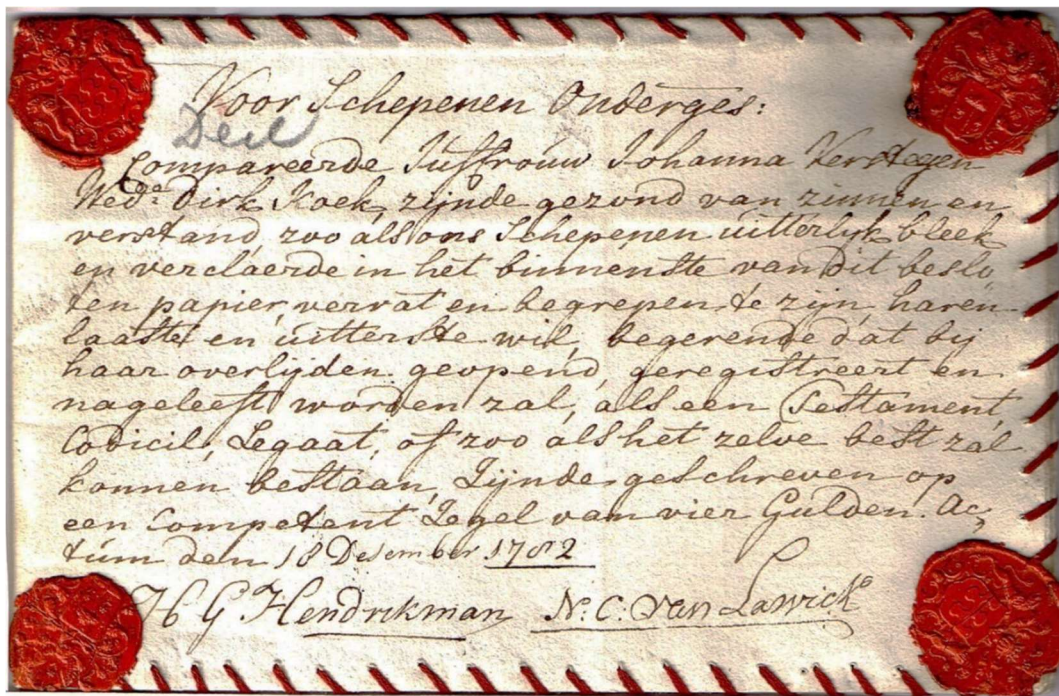 Voor Schepenen Onderges:
Deil
Compareerde Juffrouw Johanna Verstegen
Wed: Dirk Koek, zijnde gezond van zinnen en
verstand, zoo als ons Schepenen uitterlyk bleek
en verclaerde in het binnenste van dit beslo
ten papier, vervat en begrepen te zijn, haren
laaste en uitterste wil, begerende dat bij
haar overlijden geopend, geregistreert en
nageleeft worden zal, als een Testament,
Codicil, Legaat, of zoo als het zelve best zal
konnen bestaan, Zijnde geschreven op
een Competent Zegel van vier Gulden. Ac,
tum den 18 Desember 1782
H G Hendrikman N. C. Van Lawick